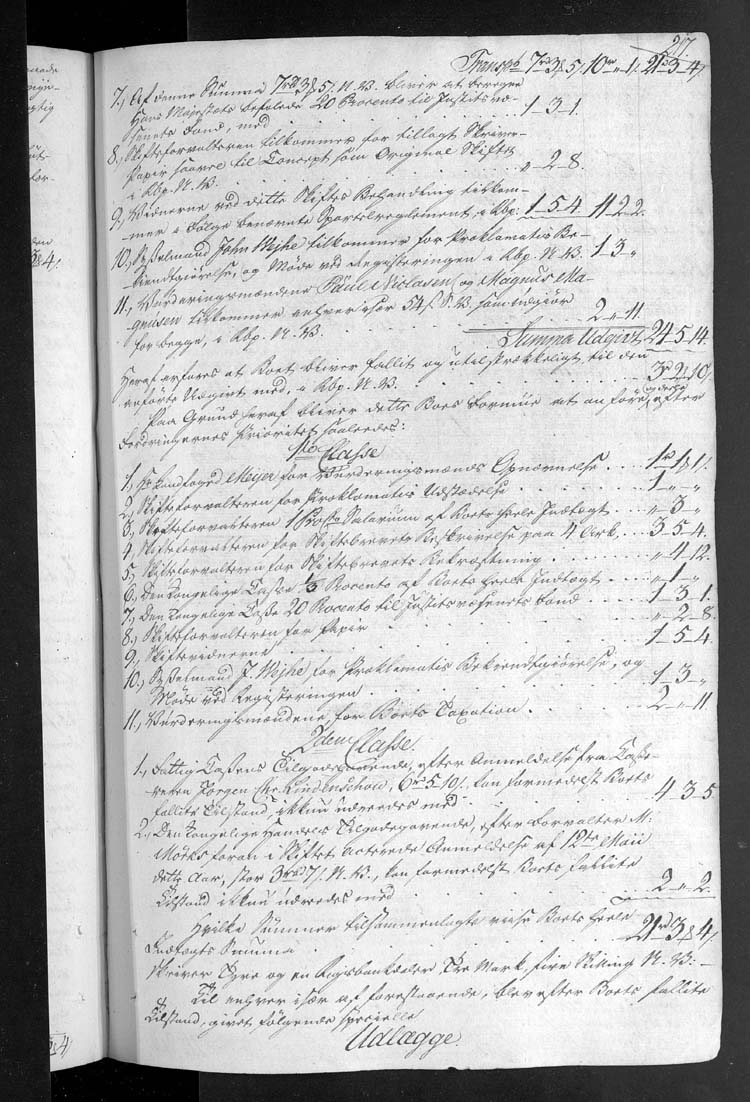 217.
Transpt 7rd 3# 5/. 10rd „ 1/. 21rd 3 4/.
7., Af denne Summa 7rd 3# 5/. N. V. bliver at beregne
Hans Majestæts befalede 20 Procento til Justitsvæ-
senets Fond, med . . . 1 – 3 – 1.
8., Skifteforvalteren tilkommer for tillagt Skriver-
Papir saavel til Concept som Original Skifte
i Rbp. N. V. . . . „ 2 – 8.
9., Vidnerne ved dette Skiftes Behandling tilkom-
mer i Følge benævnte Sportelreglement, i Rbp: 1 – 5 4 11 „ 2 – 2.
10., Sysselmand John Wejhe tilkommer for Proklamatis Be-
kiendtgiörelse, og Møde ved Registeringen i Rbp. N. V. 1 – 3 – „
11., Vurderingsmændene Paul Niclasen og Magnus Ma-
gnusen tilkommer enhver især 54/. S. V. som udgiör
for begge, i Rbp. N. V. . . . 2 – „ 11.
Summa Udgivt 24 – 5 – 14.
Heraf erfares at Boet bliver fallit og utilstrækkeligt til den
anførte Udgivt med, i Rbp. N. V. . . . 3rd 2# 10/.
Paa Grund heraf bliver dette Boes Formue at anföre, og deres efter
Fordringernes Prioritet saaledes:
1ste Classe
1., Hr Landfoged Meijer for Vurderingsmænds Opnævnelse . . . 1rd 1# 1/.
2., Skifteforvalteren for Proklamatis Udstædelse . . . 1 – „ – „
3., Skifteforvalteren 1 Procto Salarium af Boets heele Indtægt . . . „ – 3 – „
4., Skifteforvalteren for Skiftebrevets Beskrivelse paa 4 Ark, . . 3 – 5 – 4.
5., Skifteforvalteren for Skiftebrevets Bekræftning . . . „ – 4 – 12.
6., Den kongelige Casse 1/3 Procento af Boets heele Indtægt . . . „ – 1 – „
7., Den kongelige Casse 20 Procento til Justitsvæsenets Fond . . . 1 – 3 – 1.
8., Skifteforvalteren for Papir . . . „ 2 – 8.
9., Skiftevidnerne . . . 1 – 5 – 4.
10., Sysselmand J. Wejhe, for Proklamatis Bekiendtgiörelse, og
Møde ved Registeringen . . . 1 – 3 – „
11., Vurderingsmændene, for Boets Taxation . . . 2 – „ – 11
2den Classe.
1., Fattig Cassens Tilgodehavende, efter Anmeldelse fra Casse-
reren Jørgen Chr. Lindenschou, 6rd 5 10/. kan formedelst Boets
fallite Tilstand, ikkun udredes med . . . 4 – 3 – 5
2., Den kongelige Handels Tilgodehavende, efter Forvalter M:
Mørks foran i Skiftet acterede Anmeldelse af 12te Maii
dette Aar, stor 3rd „ 7/. N. V., kan formedelst Boets fallite
Tilstand ikkun udredes med . . . 2 – „ – 2.
Hvilke Summer tilsammenlagte viise Boets heele
Indtægts Summa . . . 21rd 3# 4/.
skriver Tyve og en Rigsbankdaler Tre Mark, fire Skilling N. V: –
Til enhver især af forestaaende, blev efter Boets fallite
Tilstand, givet følgende specielle
Udlægge.